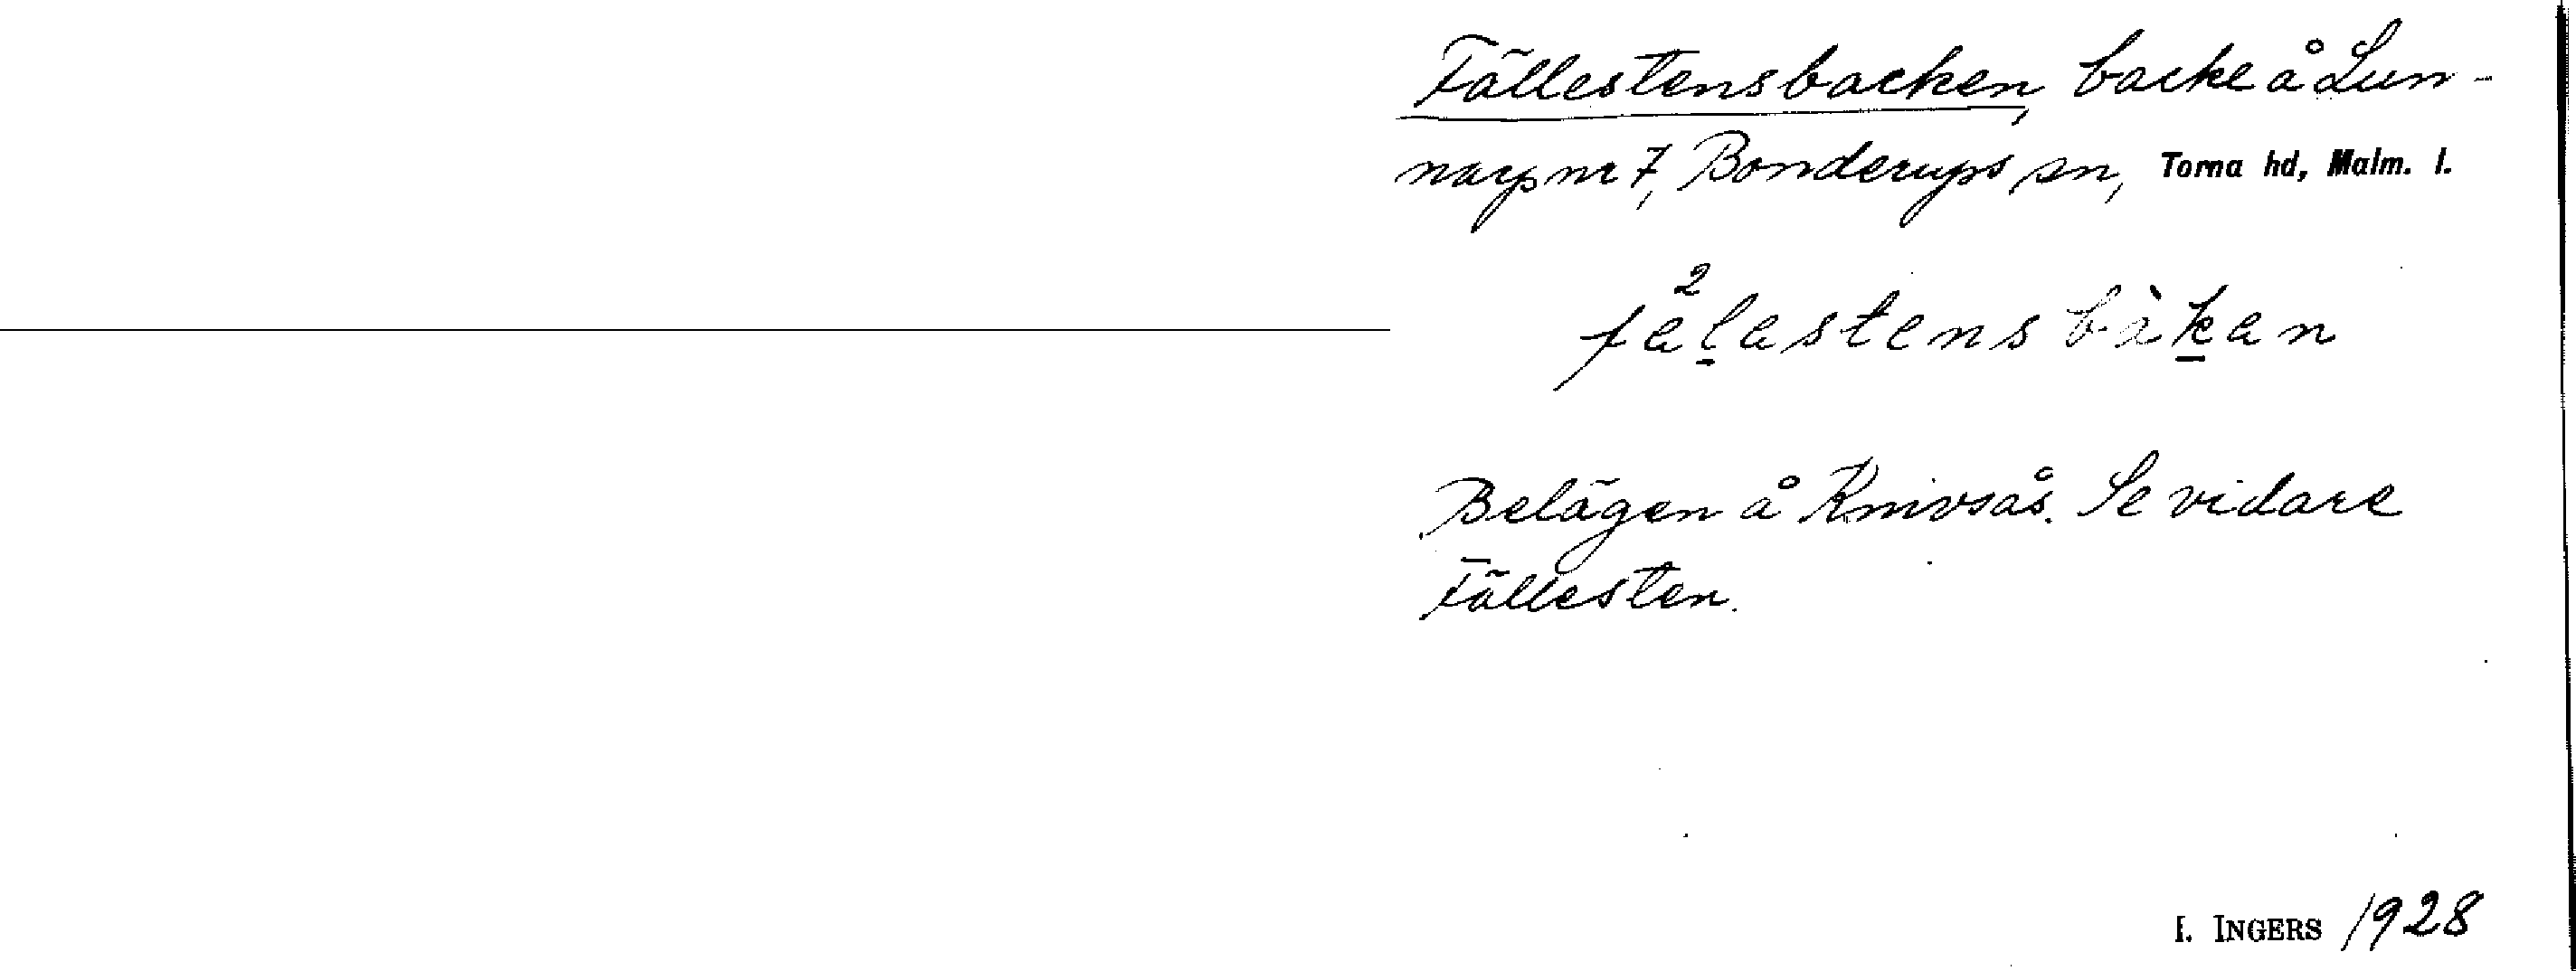 Fällestensbacken, backe å Lun-
narp nr 7, Bonderups sn, Torna hd, Malm. l.
Belägen å Knivsås. Se vidare
Fällesten.
I. INGERS 1928